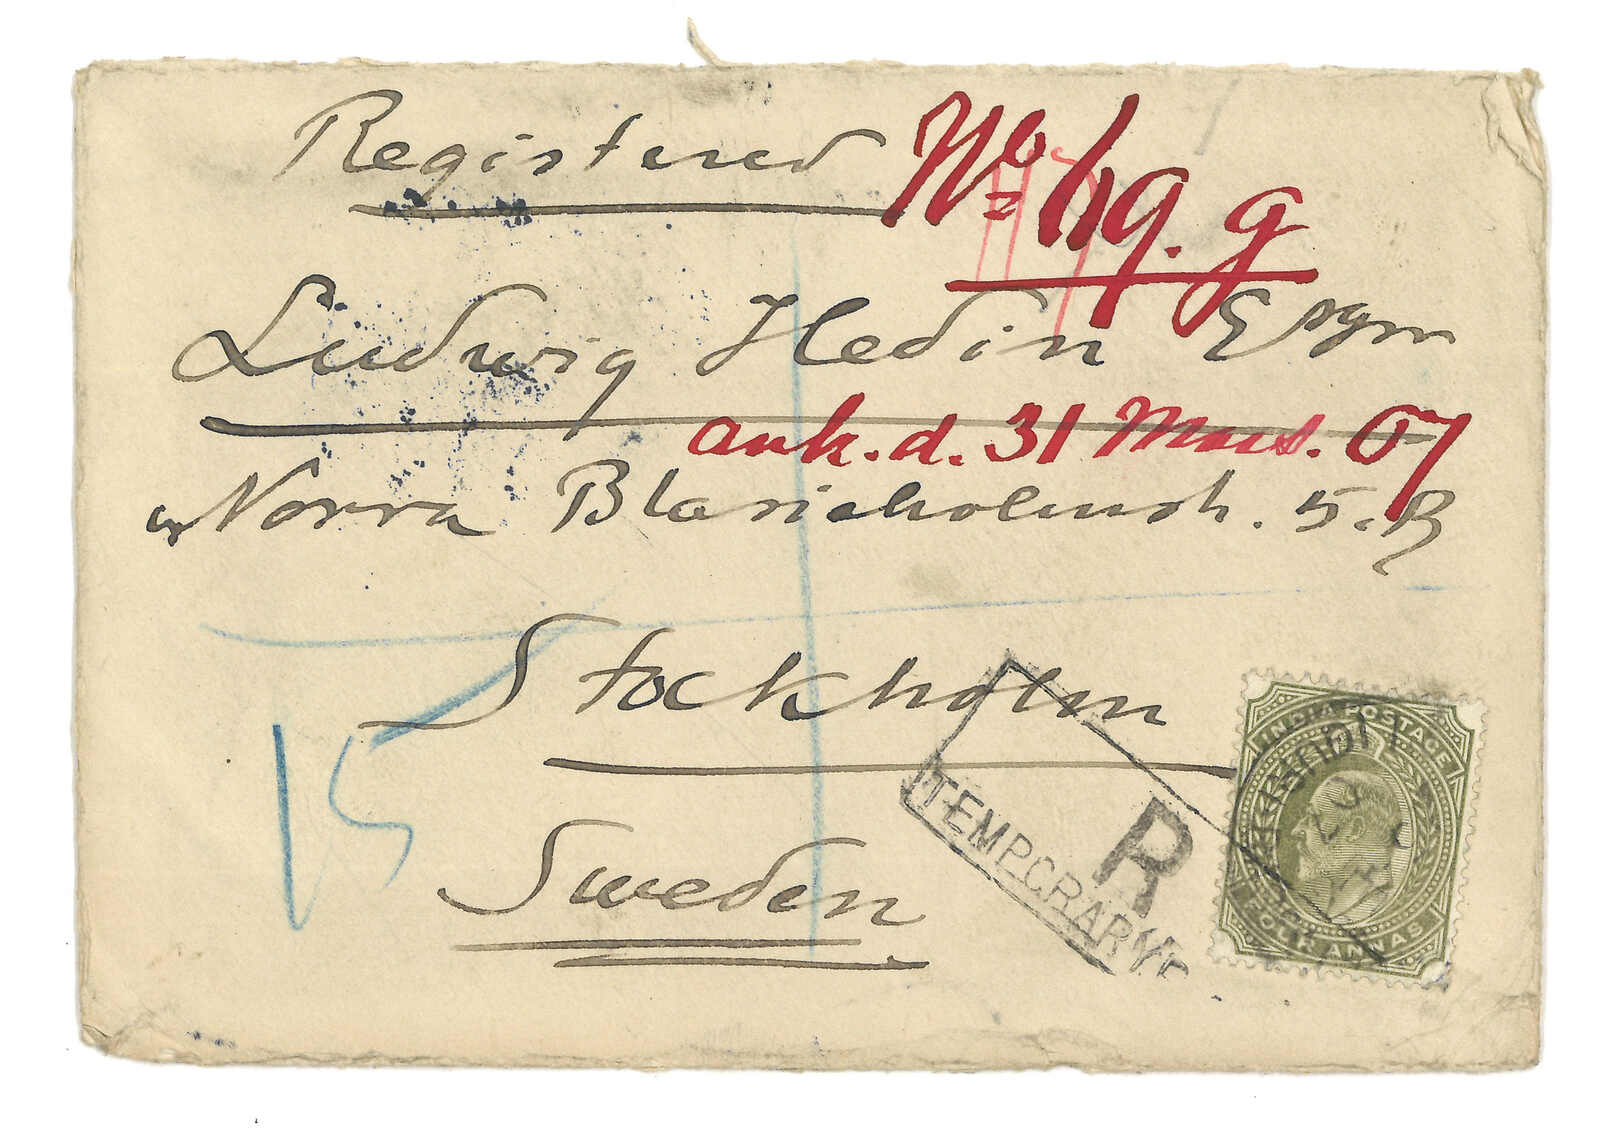 Registered
No 69. g
Ludwig Hedin Esqre
ank. d. 31 Mars. 07
Norra Blasieholmsh. 5. B
Stockholm
Sweden
15
R
TEMPORARY
INDIA POSTAGE
FOUR ANNAS